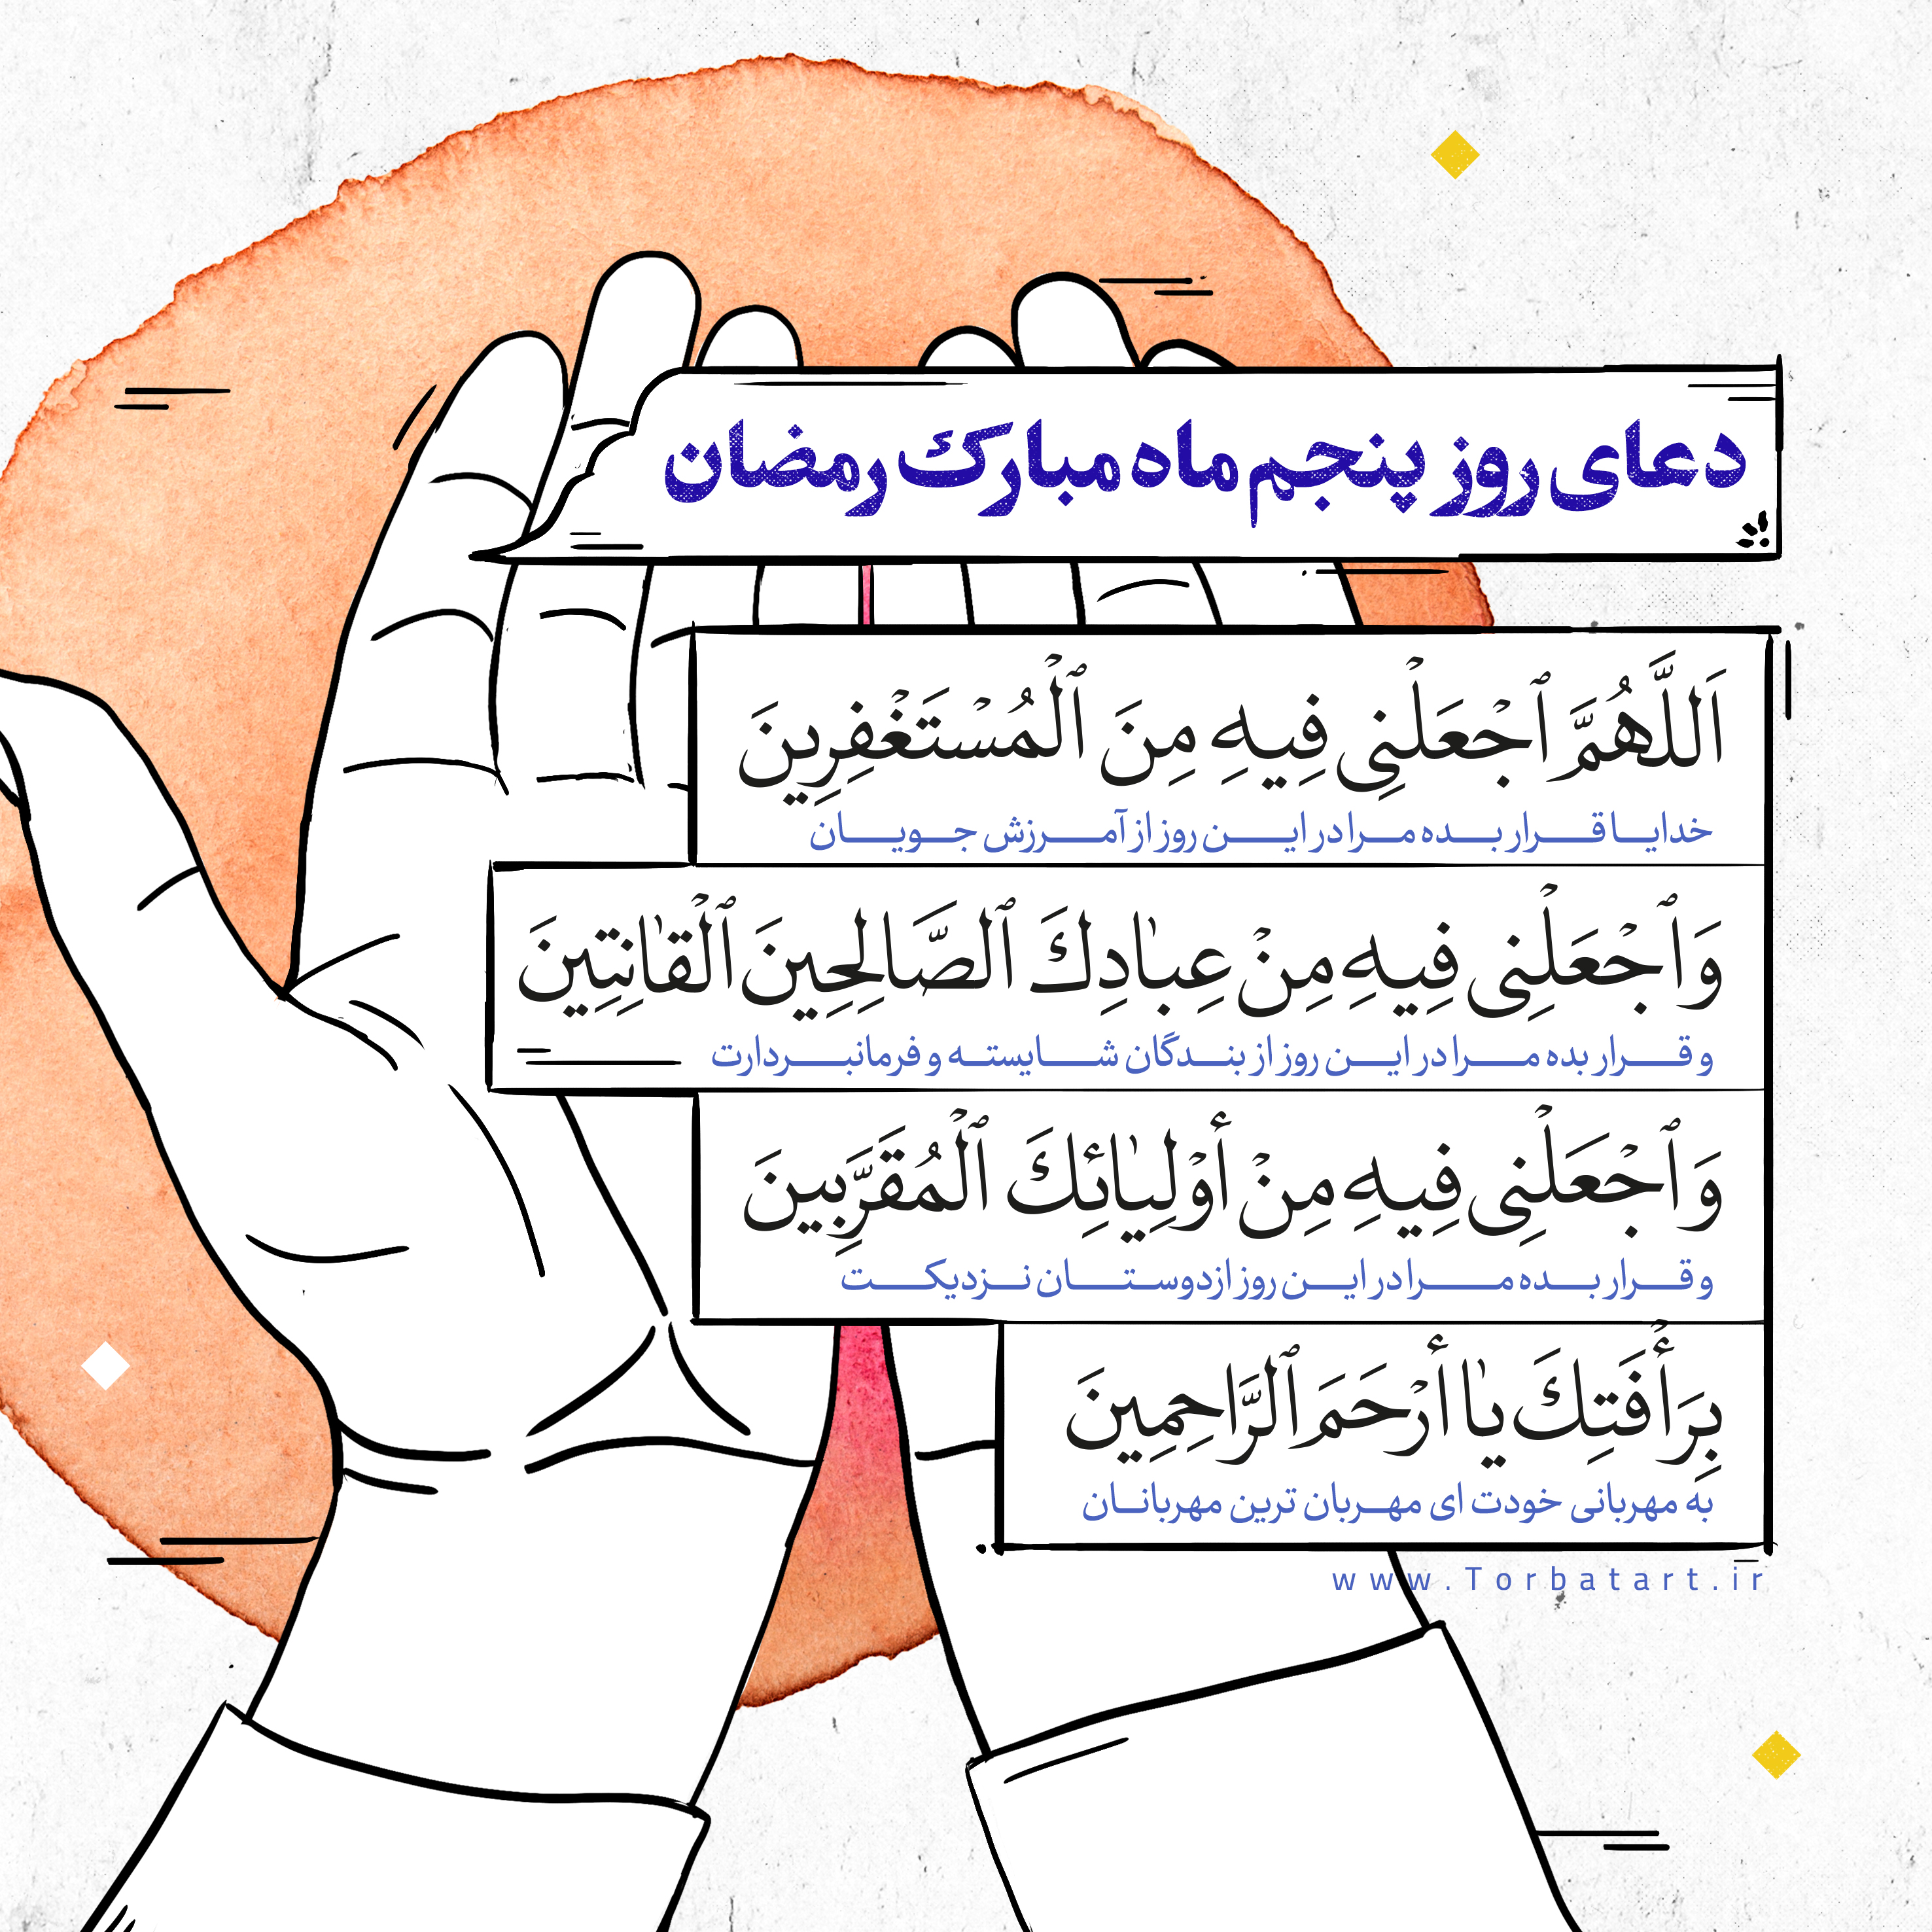 دعای روز پنجم ماه مبارک رمضان
اَللَّهُمَّ ٱجْعَلْنِی فِیهِ مِنَ ٱلْمُسْتَغْفِرِینَ
خدایا قرار بده مرا در این روز از آمرزش جویان
وَٱجْعَلْنِی فِیهِ مِنْ عِبٰادِكَ ٱلصَّالِحِینَ ٱلْقٰانِتِینَ
و قرار بده مرا در این روز از بندگان شایسته و فرمانبردارت
وَٱجْعَلْنِی فِیهِ مِنْ أَوْلِیٰائِكَ ٱلْمُقَرَّبِینَ
و قرار بده مرا در این روز ازدوستان نزدیکت
بِرَأْفَتِكَ یٰا أَرْحَمَ ٱلرَّاحِمِینَ
به مهربانی خودت ای مهربان ترین مهربانان
www.Torbatart.ir